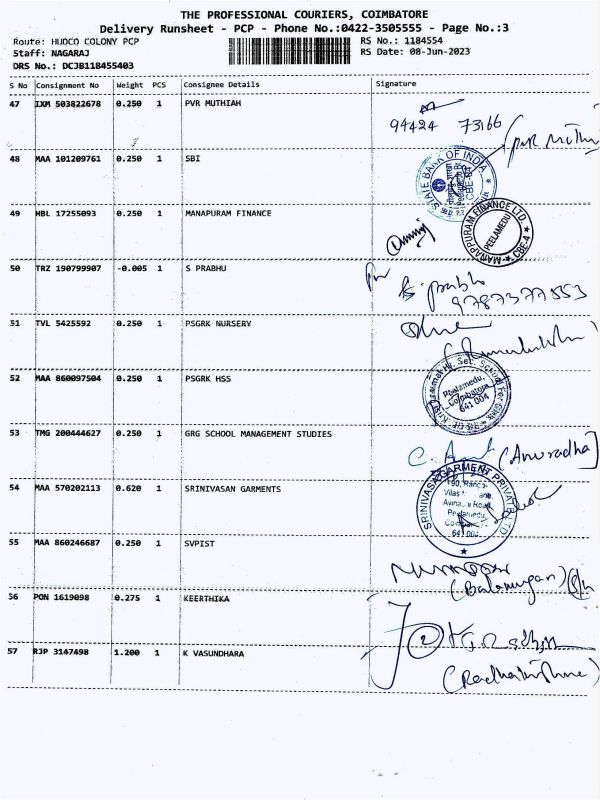 THE PROFESSIONAL COURIERS, COIMBATORE
Delivery Runsheet - PCP - Phone No.:0422-3505555 - Page No.:3
Route: HUDCO COLONY PCP
RS No.: 1184554
Staff: NAGARAJ
RS Date: 08-Jun-2023
DRS No.: DCJB118455403
S No Consignment No Weight PCS Consignee Details Signature
47 IXM 503822678 0.250 1 PVR MUTHIAH
94424 73166
48 MAA 101209761 0.250 1 SBI
STATE BANK OF INDIA
49 HBL 17255093 0.250 1 MANAPURAM FINANCE
MANAPPURAM FINANCE LTD.
PEELAMEDU
CBE-4
50 TRZ 190799907 -0.005 1 S PRABHU
S. prabhu
9787377553
51 TVL 5425592 0.250 1 PSGRK NURSERY
52 MAA 860097504 0.250 1 PSGRK HSS
Peelamedu,
Coimbatore
641 004
53 TMG 200444627 0.250 1 GRG SCHOOL MANAGEMENT STUDIES
(Anuradha)
54 MAA 570202113 0.620 1 SRINIVASAN GARMENTS
SRINIVASA GARMENT PRIVATE LTD
Peelamedu,
55 MAA 860246687 0.250 1 SVPIST
(Balamurugan)
56 PON 1619098 0.275 1 KEERTHIKA
57 RJP 3147498 1.200 1 K VASUNDHARA